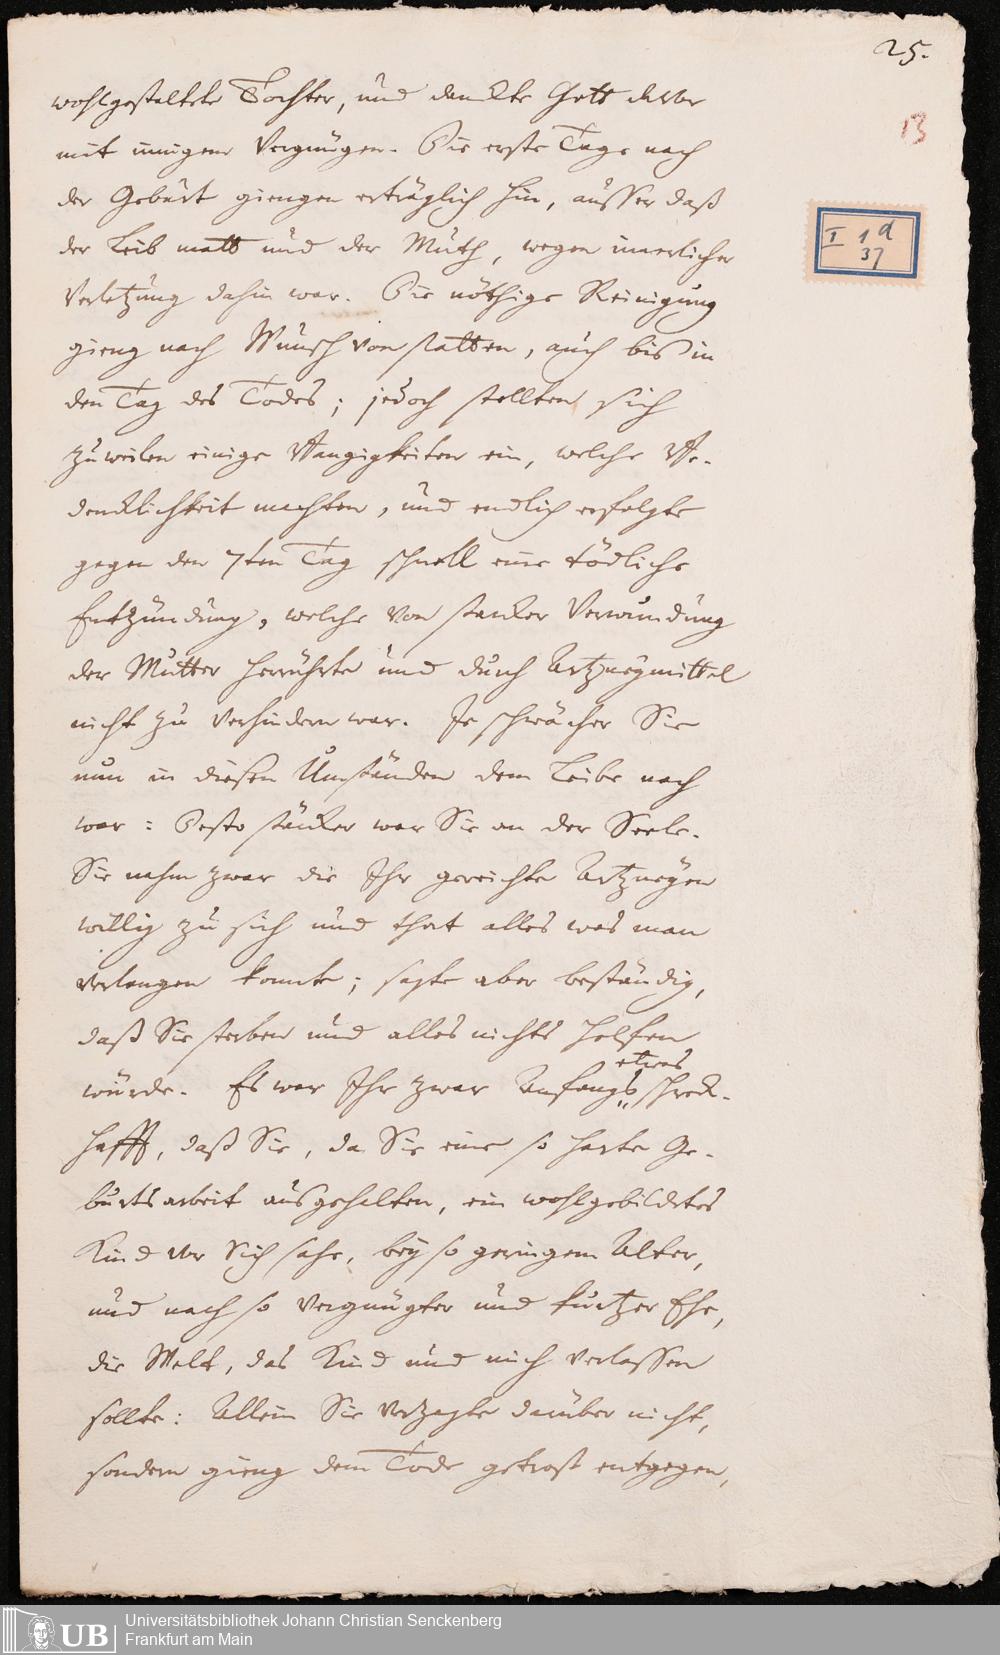 25.
13
I 1 d
37
wohlgestaltete Tochter, und danckte Gott davor
mit innigem Vergnügen. Die erste Tage nach
der Geburt giengen erträglich hin, ausser daß
der Leib matt und der Muth, wegen innerlicher
Verletzung dahin war. Die nöthige Reinigung
gieng nach Wunsch von statten, auch biß in
den Tag des Todes; jedoch stellten sich
zuweilen einige Bangigkeiten ein, welche Be-
dencklichkeit machten, und endlich erfolgte
gegen den 7ten Tag schnell eine tödliche
Entzündung, welche von starcker Verwundung
der Mutter herrührte und durch Artzneymittel
nicht zu verhindern war. Je schwächer Sie
nun in diesen Umständen dem Leibe nach
war: Desto stärcker war Sie an der Seele.
Sie nahm zwar die Ihr gereichte Artzneyen
willig zu sich und that alles was man
verlangen konnte; sagte aber beständig,
daß Sie sterben und alles nichts helfen
würde. Es war Ihr zwar Anfangs etwas schreck-
hafft, daß Sie, da Sie eine so harte Ge-
burtsarbeit ausgehalten, ein wohlgebildetes
Kind vor Sich sahe, bey so geringem Alter,
und nach so vergnügter und kurtzer Ehe,
die Welt, das Kind und mich verlassen
sollte: Allein Sie verzagte darüber nicht,
sondern gieng dem Tode getrost entgegen,
UB
Universitätsbibliothek Johann Christian Senckenberg
Frankfurt am Main